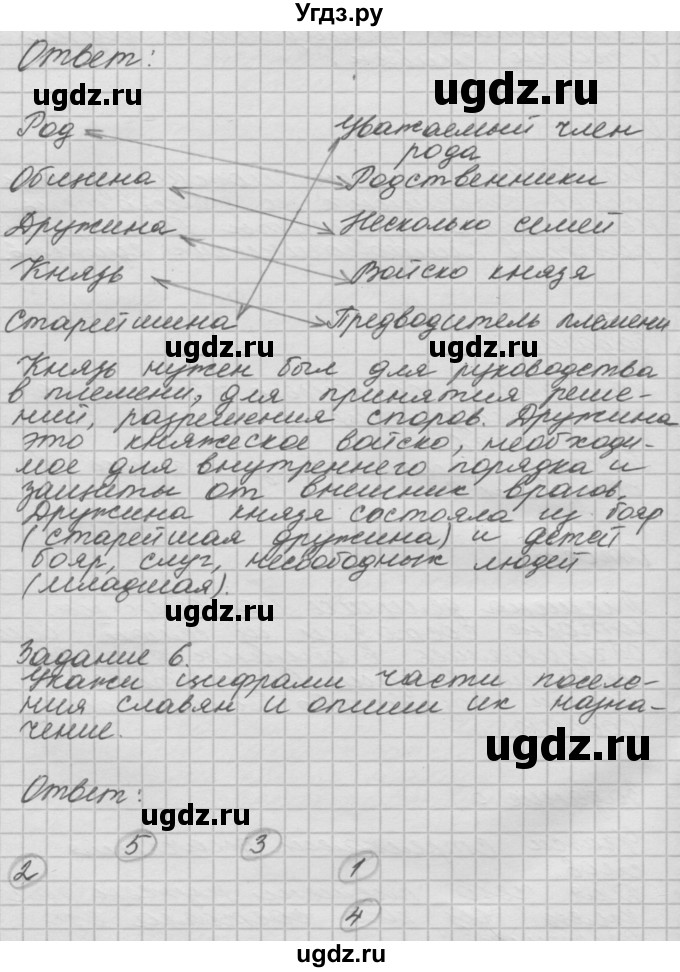 Угдз.ру
Ответ:
ugdz.ru ugdz.ru
Род Уважаемый член
рода
Община Родственники
Дружина Несколько семей
Князь Войско князя
Старейшина Предводитель племени
ugdz.ru ugdz.ru
Князь нужен был для руководства
в племени, для принятия реше-
ний, разрешения споров. Дружина
это княжеское войско, необходи-
мое для внутреннего порядка и
защиты от внешних врагов.
Дружина князя состояла из бояр
(старейшая дружина) и детей
бояр, слуг, несвободных людей
(младшая).
ugdz.ru
Задание 6.
Укажи цифрами части поселе-
ния славян и опиши их назна-
чение.
ugdz.ru
Ответ:
ugdz.ru
5 3
2 1
4
ugdz.ru